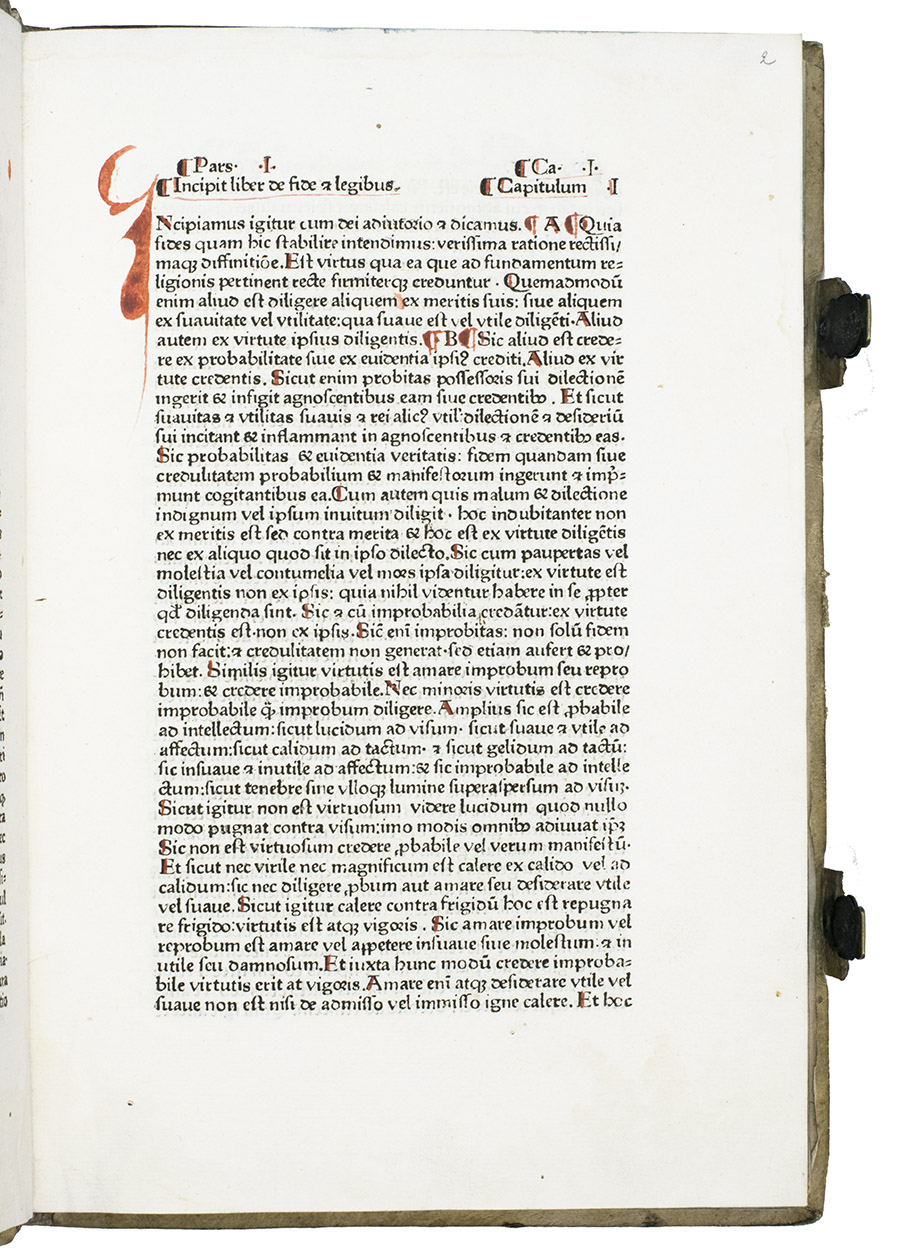 2
¶Pars· ·I· ¶Ca· ·I·
¶Incipit liber de fide ⁊ legibus. ¶Capitulum ·I
INcipiamus igitur cum dei adiutorio ⁊ dicamus.¶ A ¶Quia
fides quam hic stabilire intendimus: verissima ratione rectissi/
maqʒ diffinitiõe.Est virtus qua ea que ad fundamentum re=
ligionis pertinent recte firmiterqʒ creduntur · Quemadmodũ
enim aliud est diligere aliquem ex meritis suis: siue aliquem
ex suauitate vel vtilitate:qua suaue est vel vtile diligẽti·Aliud
autem ex virtute ipsius diligentis.¶ B¶Sic aliud est crede=
re ex probabilitate siue ex euidentia ipsiꝰ crediti.Aliud ex vir
tute credentis. Sicut enim probitas possessoris sui dilectionẽ
ingerit & infigit agnoscentibus eam siue credentibꝰ . Et sicut
suauitas ⁊ vtilitas suauis ⁊ rei alicꝰ vtil':dilectionẽ ⁊ desideriũ
sui incitant & inflammant in agnoscentibus ⁊ credentibꝰ eas·
Sic probabilitas & euidentia veritatis: fidem quandam siue
credulitatem probabilium & manifestorum ingerunt ⁊ imp̃=
munt cogitantibus ea.Cum autem quis malum & dilectione
indignum vel ipsum inuitum diligit · hoc indubitanter non
ex meritis est sed contra merita & hoc est ex virtute diligẽtis
nec ex aliquo quod sit in ipso dilecto.Sic cum paupertas vel
molestia vel contumelia vel mors ipsa diligitur:ex virtute est
diligentis non ex ipsis: quia nihil videntur habere in se ꝓpter
qđ diligenda sint. Sic ⁊ cũ improbabilia credãtur:ex virtute
credentis est·non ex ipsis.Sic̃ enĩ improbitas: non solũ fidem
non facit:⁊ credulitatem non generat·sed etiam aufert & pro/
hibet. Similis igitur virtutis est amare improbum seu repro
bum:& credere improbabile.Nec minoris virtutis est credere
improbabile q̃ improbum diligere.Amplius sic est ꝓbabile
ad intellectum:sicut lucidum ad visum· sicut suaue ⁊ vtile ad
affectum:sicut calidum ad tactum· ⁊ sicut gelidum ad tactũ:
sic insuaue ⁊ inutile ad affectum:& sic improbabile ad intelle
ctum:sicut tenebre sine vlloqʒ lumine superaspersum ad visũ·
Sicut igitur non est virtuosum videre lucidum quod nullo
modo pugnat contra visum:imo modis omnibꝰ adiuuat ip̃ʒ
Sic non est virtuosum credere ꝓbabile vel verum manifestũ·
Et sicut nec virile nec magnificum est calere ex calido vel ad
calidum:sic nec diligere ꝓbum aut amare seu desiderare vtile
vel suaue.Sicut igitur calere contra frigidũ hoc est repugna
re frigido:virtutis est atqʒ vigoris . Sic amare improbum vel
reprobum est amare vel appetere insuaue siue molestum:⁊ in
utile seu damnosum.Et iuxta hunc modũ credere improba=
bile virtutis erit at vigoris.Amare enĩ atqʒ desiderare vtile vel
suaue non est nisi de admisso vel immisso igne calere. Et hoc